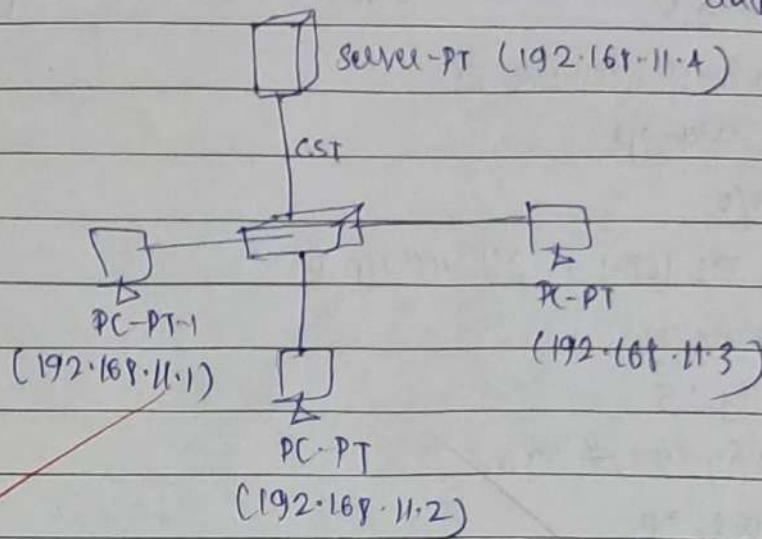 Server-PT (192.168.11.4)
CST
PC-PT-1
(192.168.11.1)
PC-PT
(192.168.11.3)
PC-PT
(192.168.11.2)